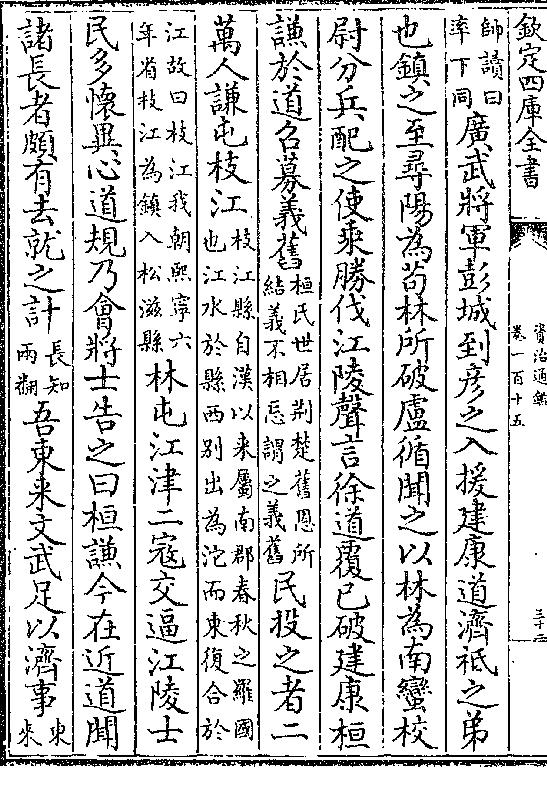 欽定四庫全書
資治通鑑
卷一百十五
三十二
師讀曰
率下同
廣武將軍彭城到彥之入援建康道濟祗之弟
也鎮之至尋陽為苟林所破盧循聞之以林為南蠻校
尉分兵配之使乘勝伐江陵聲言徐道覆已破建康桓
謙於道召募義舊
桓氏世居荆楚舊恩所
結義不相忘謂之義舊
民投之者二
萬人謙屯枝江
枝江縣自漢以来屬南郡春秋之羅國
也江水於縣西别出為沱而東復合於
江故曰枝江我朝熙寧六
年省枝江為鎮入松滋縣
林屯江津二寇交逼江陵士
民多懷異心道規乃會將士告之曰桓謙今在近道聞
諸長者頗有去就之計
長知
兩翻
吾東来文武足以濟事
東
来